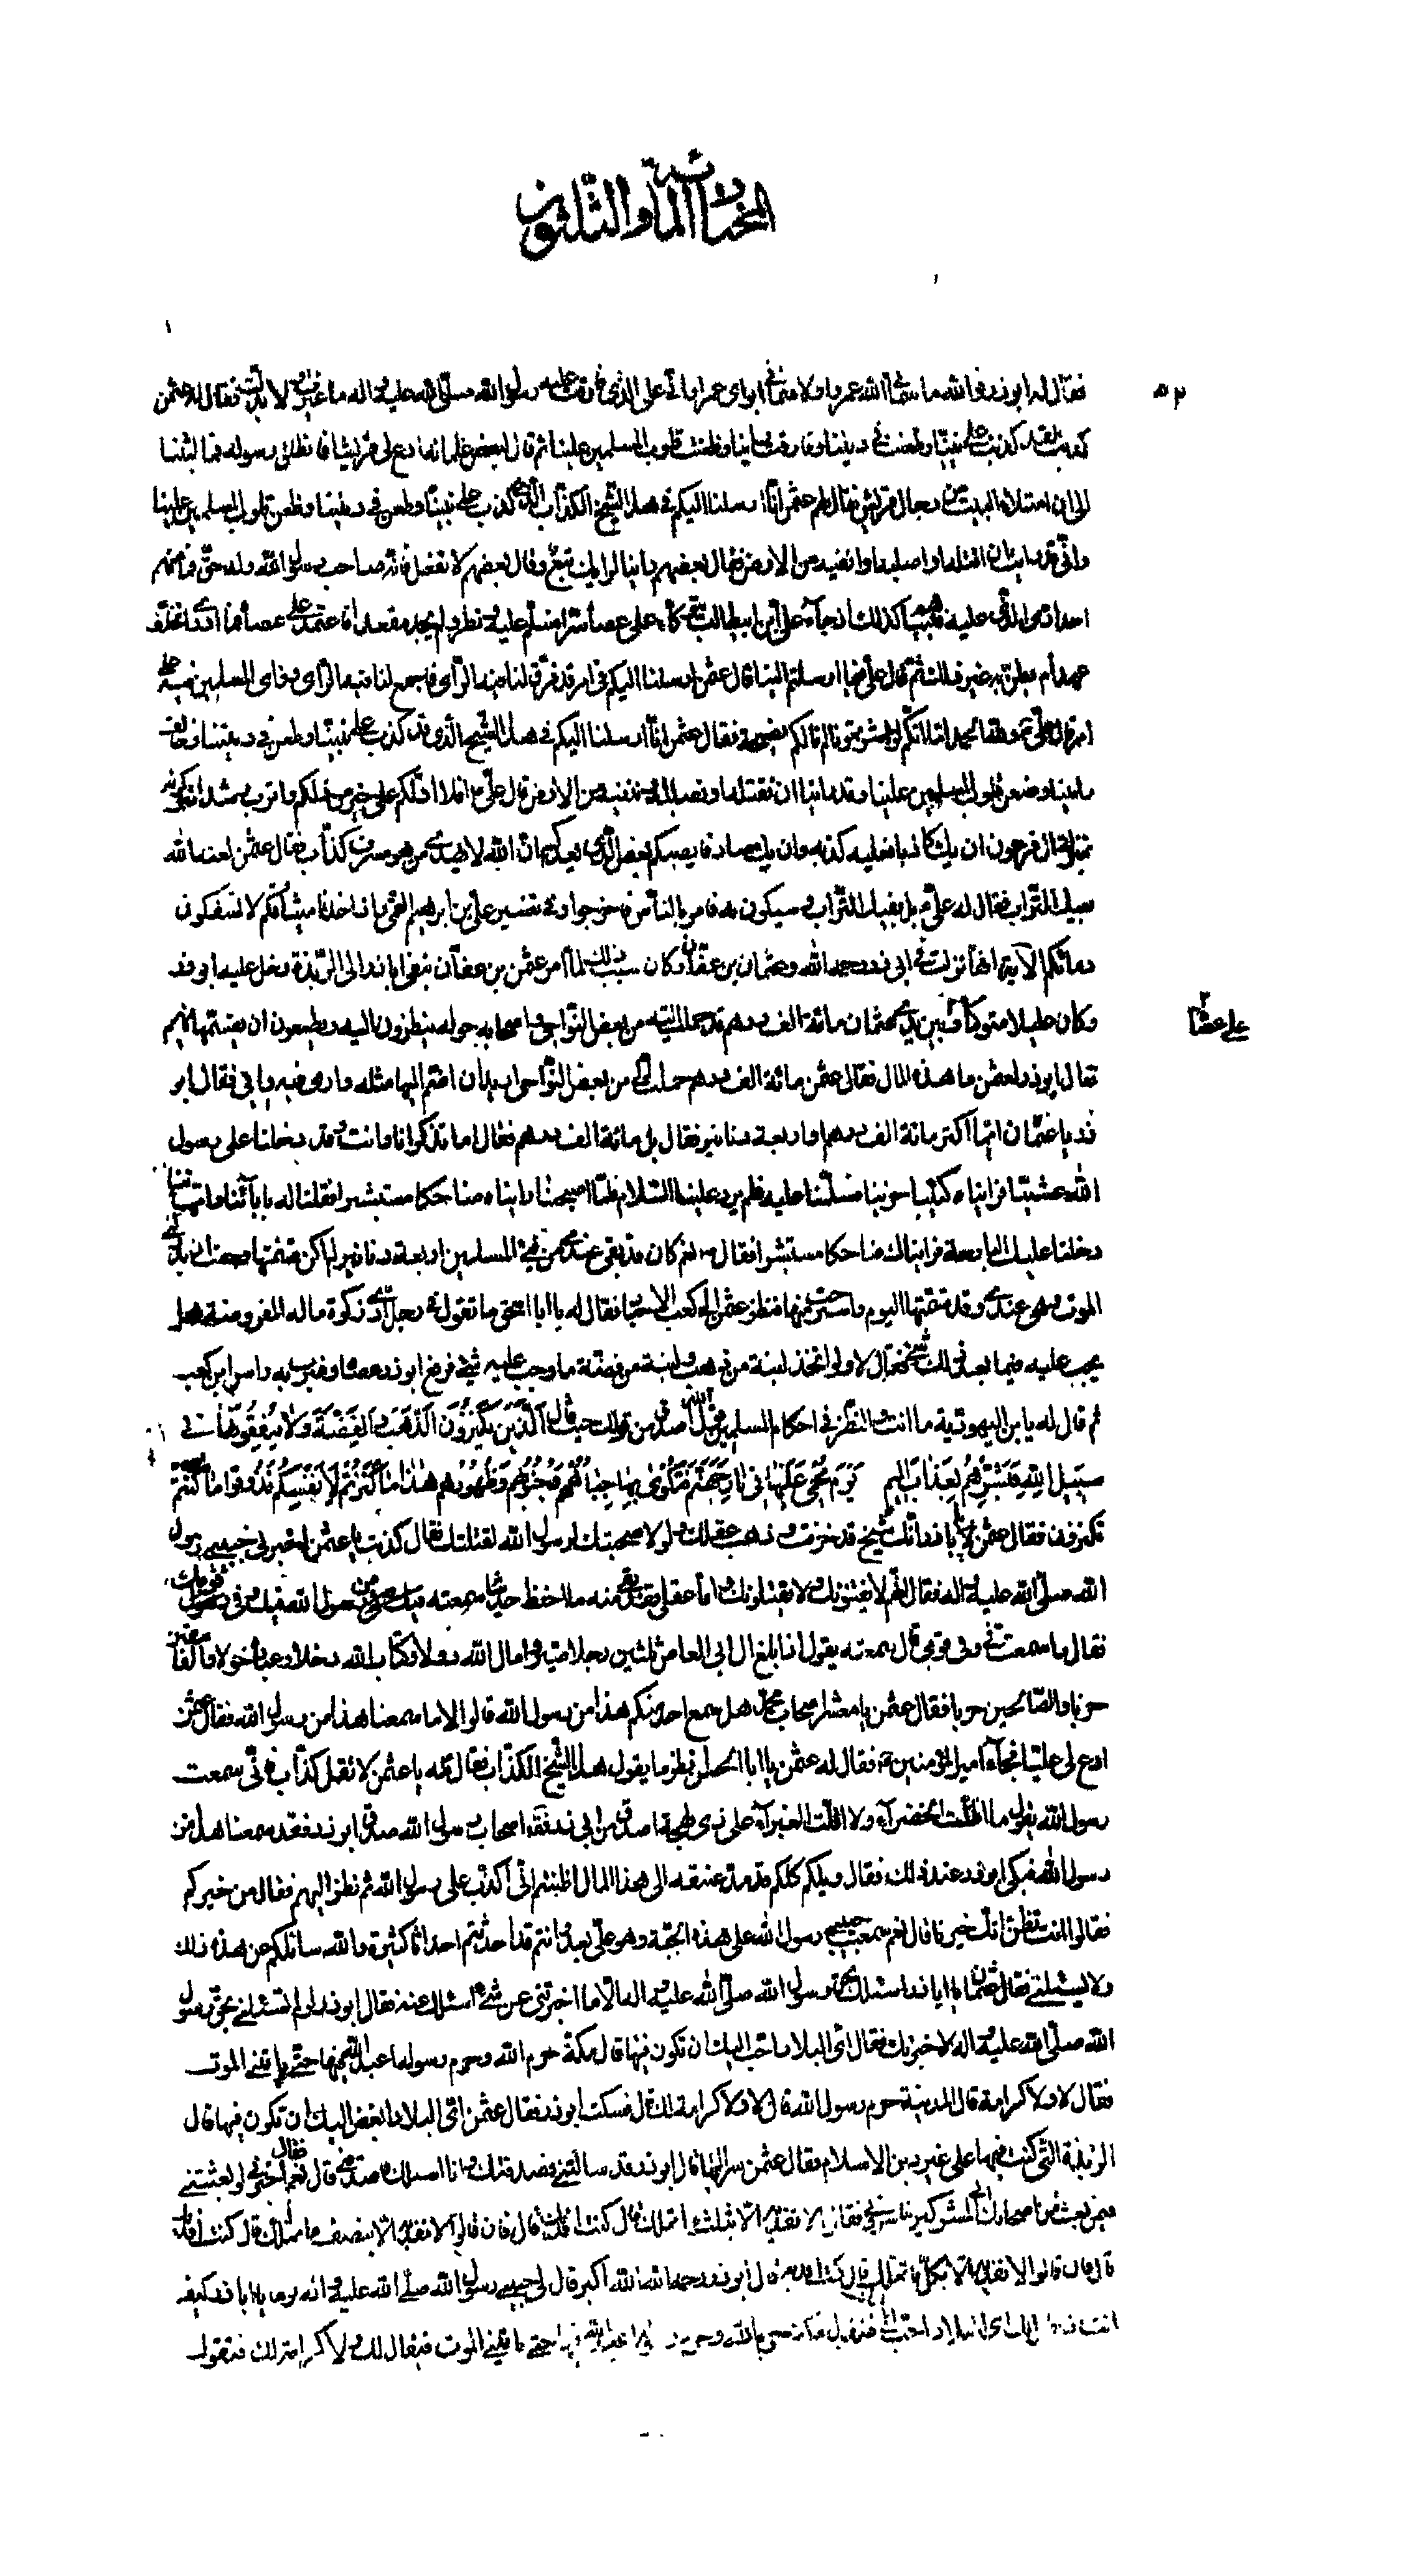 فقال له ابوذر فوالله ما سماني الله عمروا ولا سماني ابواي عمرا واني على الذي فارقت عليه رسول الله صلى الله عليه واله ما غيرت ولا بدلت فقال له عثمن
كذبت لقد كذبت على نبينا وطعنت في ديننا وفارقت راينا وظغنت قلوب المسلمين علينا ثم قال لبعض غلمانه ادع لي قريشا فانطلق رسوله فما لبثنا
الى ان امتلاء البيت من رجال قريش فقال لهم عثمن انا ارسلنا اليكم في هذا الشيخ الكذاب الذي كذب على نبينا وطعن في ديننا وظعن قلوب المسلمين علينا
واني قد رايت ان اقتله او اصلبه او انفيه من الارض فقال بعضهم راينا لرايك تبع وقال بعضهم لا تفعل فانه صاحب رسول الله وله حق فما منهم
احد ادى الذي عليه فبينا هم كذلك اذ جاء على بن ابيطالب يتوكاء على عصا سترا فسلم عليه ونظر ولم يجد مقعدا فاعتمد على عصاه فما ادري اتخلف
عهد ام يظن به غير ذلك ثم قال علي فيما ارسلتم الينا قال عثمن ارسلنا اليكم في امر قد فرق لنا فيه الراي فاجمع لنا فيه الراي وراى المسلمين فيه على
امر قال علي ولله الحمد اما انكم لو استشرتمونا لم نالكم نصيحة فقال عثمن انا ارسلنا اليكم في هذا الشيخ الذي قد كذب على نبينا وطعن في ديننا وخالف
راينا وضغن قلوب المسلمين علينا وقد راينا ان نقتله او نصلبه او ننفيه من الارض قال علي افلا ادلكم على خير من ذلكم واقرب رشدا تتركونه
بمنزلة مؤمن ال فرعون ان يك كاذبا فعليه كذبه وان يك صادقا يصبكم بعض الذي يعدكم ان الله لا يهدي من هو مسرف كذاب فقال عثمن لعنه الله
بفيك التراب فقال له علي بل بفيك التراب وسيكون به فامر بالناس فاخرجوا وفي تفسير علي بن ابرهيم القمي واذ اخذنا ميثاقكم لا تسفكون
دمائكم الآية انها نزلت في ابي ذر رحمه الله وعثمان بن عفان وكان سبب ذلك لما امر عثمن بن عفان بنفي اباذر الى الربذة دخل عليه ابوذر
وكان عليلا متوكأ وبين يدي عثمان مائة الف درهم قد حملت اليه من بعض النواحي واصحابه حوله ينظرون اليه ويطمعون ان يقسمها فيهم
فقال ابوذر لعثمن ما هذه المال فقال عثمن مائة الف درهم حملت الي من بعض النواحي اريد ان اضم اليها مثله وارى فيه رايي فقال ابو
ذر يا عثمان ايما اكثر مائة الف درهم او اربعة دنانير فقال بل مائة الف درهم فقال اما تذكر انا وانت وقد دخلنا على رسول
الله عشيا فرايناه كئيبا حزينا فسلمنا عليه فلم يرد علينا السلام فلما اصبحنا اتيناه ضاحكا مستبشرا فقلنا له بابآئنا وامهاتنا
دخلنا عليك البارحة فرايناك ضاحكا مستبشرا فقال نعم كان قد بقى عندي من فئ المسلمين اربعة دنانير لم اكن قسمتها وخفت ان يدركني
الموت وهي عندي وقد قسمتها اليوم واسترحت منها فنظر عثمن الى كعب الاحبار فقال له يا ابا اسحق ما تقول في رجل ادى زكوة ماله المفروضة هل
يجب عليه فيما بعد ذلك شئ فقال لا ولو اتخذ لبنة من ذهب ولبنة من فضة ما وجب عليه شئ فرفع ابوذر عصاه فضرب به راس ابن كعب
ثم قال له يابن اليهودية ما انت والنظر في احكام المسلمين قول الله اصدق من قولك حيث قال الَّذِينَ يَكْنِزُونَ الذَّهَبَ وَالْفِضَّةَ وَلَا يُنْفِقُونَهَا فِي
سَبِيلِ اللَّهِ فَبَشِّرْهُمْ بِعَذَابٍ أَلِيمٍ يَوْمَ يُحْمَى عَلَيْهَا فِي نَارِ جَهَنَّمَ فَتُكْوَى بِهَا جِبَاهُهُمْ وَجُنُوبُهُمْ وَظُهُورُهُمْ هَذَا مَا كَنَزْتُمْ لِأَنْفُسِكُمْ فَذُوقُوا مَا كُنْتُمْ
تكنزون فقال عثمن يا اباذر انك شيخ قد خرفت وذهب عقلك ولو لا صحبتك لرسول الله لقتلتك فقال كذبت يا عثمن اخبرني حبيبي رسول
الله صلى الله عليه واله فقال لا يفتنونك ولا يقتلونك واما عقلي فقد بقى منه ما احفظ حديثا سمعته من رسول الله فيك وفي قومك
فقال ما سمعت في وفي قومي قال سمعته يقول اذا بلغ ال ابي العاص ثلثين رجلا صيروا مال الله دولا وكتاب الله دغلا وعباده خولا والفاسقين
حزبا والصالحين حربا فقال عثمن يا معشر اصحاب محمد هل سمع احد منكم هذا من رسول الله قالوا لا ما سمعنا هذا من رسول الله فقال عثمن
ادع لي عليا فجاء امير المؤمنين فقال له عثمن يا ابا الحسن انظر ما يقول هذا الشيخ الكذاب فقال مه يا عثمن لا تقل كذاب فاني سمعت
رسول الله يقول ما اظلت الخضرآء ولا اقلت الغبرآء على ذي لهجة اصدق من ابي ذر فقال اصحاب رسول الله صدق ابوذر فقد سمعنا هذا من
رسول الله فبكى ابوذر عند ذلك فقال ويلكم كلكم قد مد عنقه الى هذا المال ظننتم اني اكذب على رسول الله ثم نظر اليهم فقال من خيركم
فقالوا انت تظن انك خيرنا قال نعم سمعت حبيبي رسول الله على هذه الجبة وهو علي بعد وانتم قد احدثتم احداثا كثيرة والله سائلكم عن هذه ذلك
ولا يسئلني فقال عثمان يا اباذر اسئلك بحق رسول الله صلى الله عليه واله الا ما اخبرتني عن شئ اسئلك عنه فقال ابوذر لو لم تسئلني بحق رسول
الله صلى الله عليه واله لاخبرتك فقال اي البلاد احب اليك ان تكون فيها قال مكة حرم الله وحرم رسوله اعبد الله فيها حتى ياتيني الموت
فقال لا ولا كرامة قال المدينة حرم رسول الله قال لا ولا كرامة لك قال فسكت ابوذر فقال عثمن اي البلاد ابغض اليك ان تكون فيها قال
الربذة التي كنت فيها على غير دين الاسلام فقال عثمن سر اليها قال ابوذر قد سالتني فصدقتك وانا اسئلك فاصدقني قال نعم فقال اخبرني لو بعثتني
فيمن بعثت من اصحابك الى المشركين فاسروني فقالوا لا نفديه الا بثلث ما تملك قال كنت افديك قال فان قالوا لا نفديه الا بنصف ما تملك قال كنت افديك
قال فان قالوا لا نفديه الا بكل ما تملك قال كنت افديك قال ابوذر رحمه الله الله اكبر قال لي حبيبي رسول الله صلى الله عليه واله يوما يا اباذر كيف
انت اذا قيل لك اي البلاد احب اليك فتقول مكة حرم الله وحرم رسوله اعبد الله فيها حتى ياتيني الموت فيقال لك لا ولا كرامة لك فتقول
على عصا